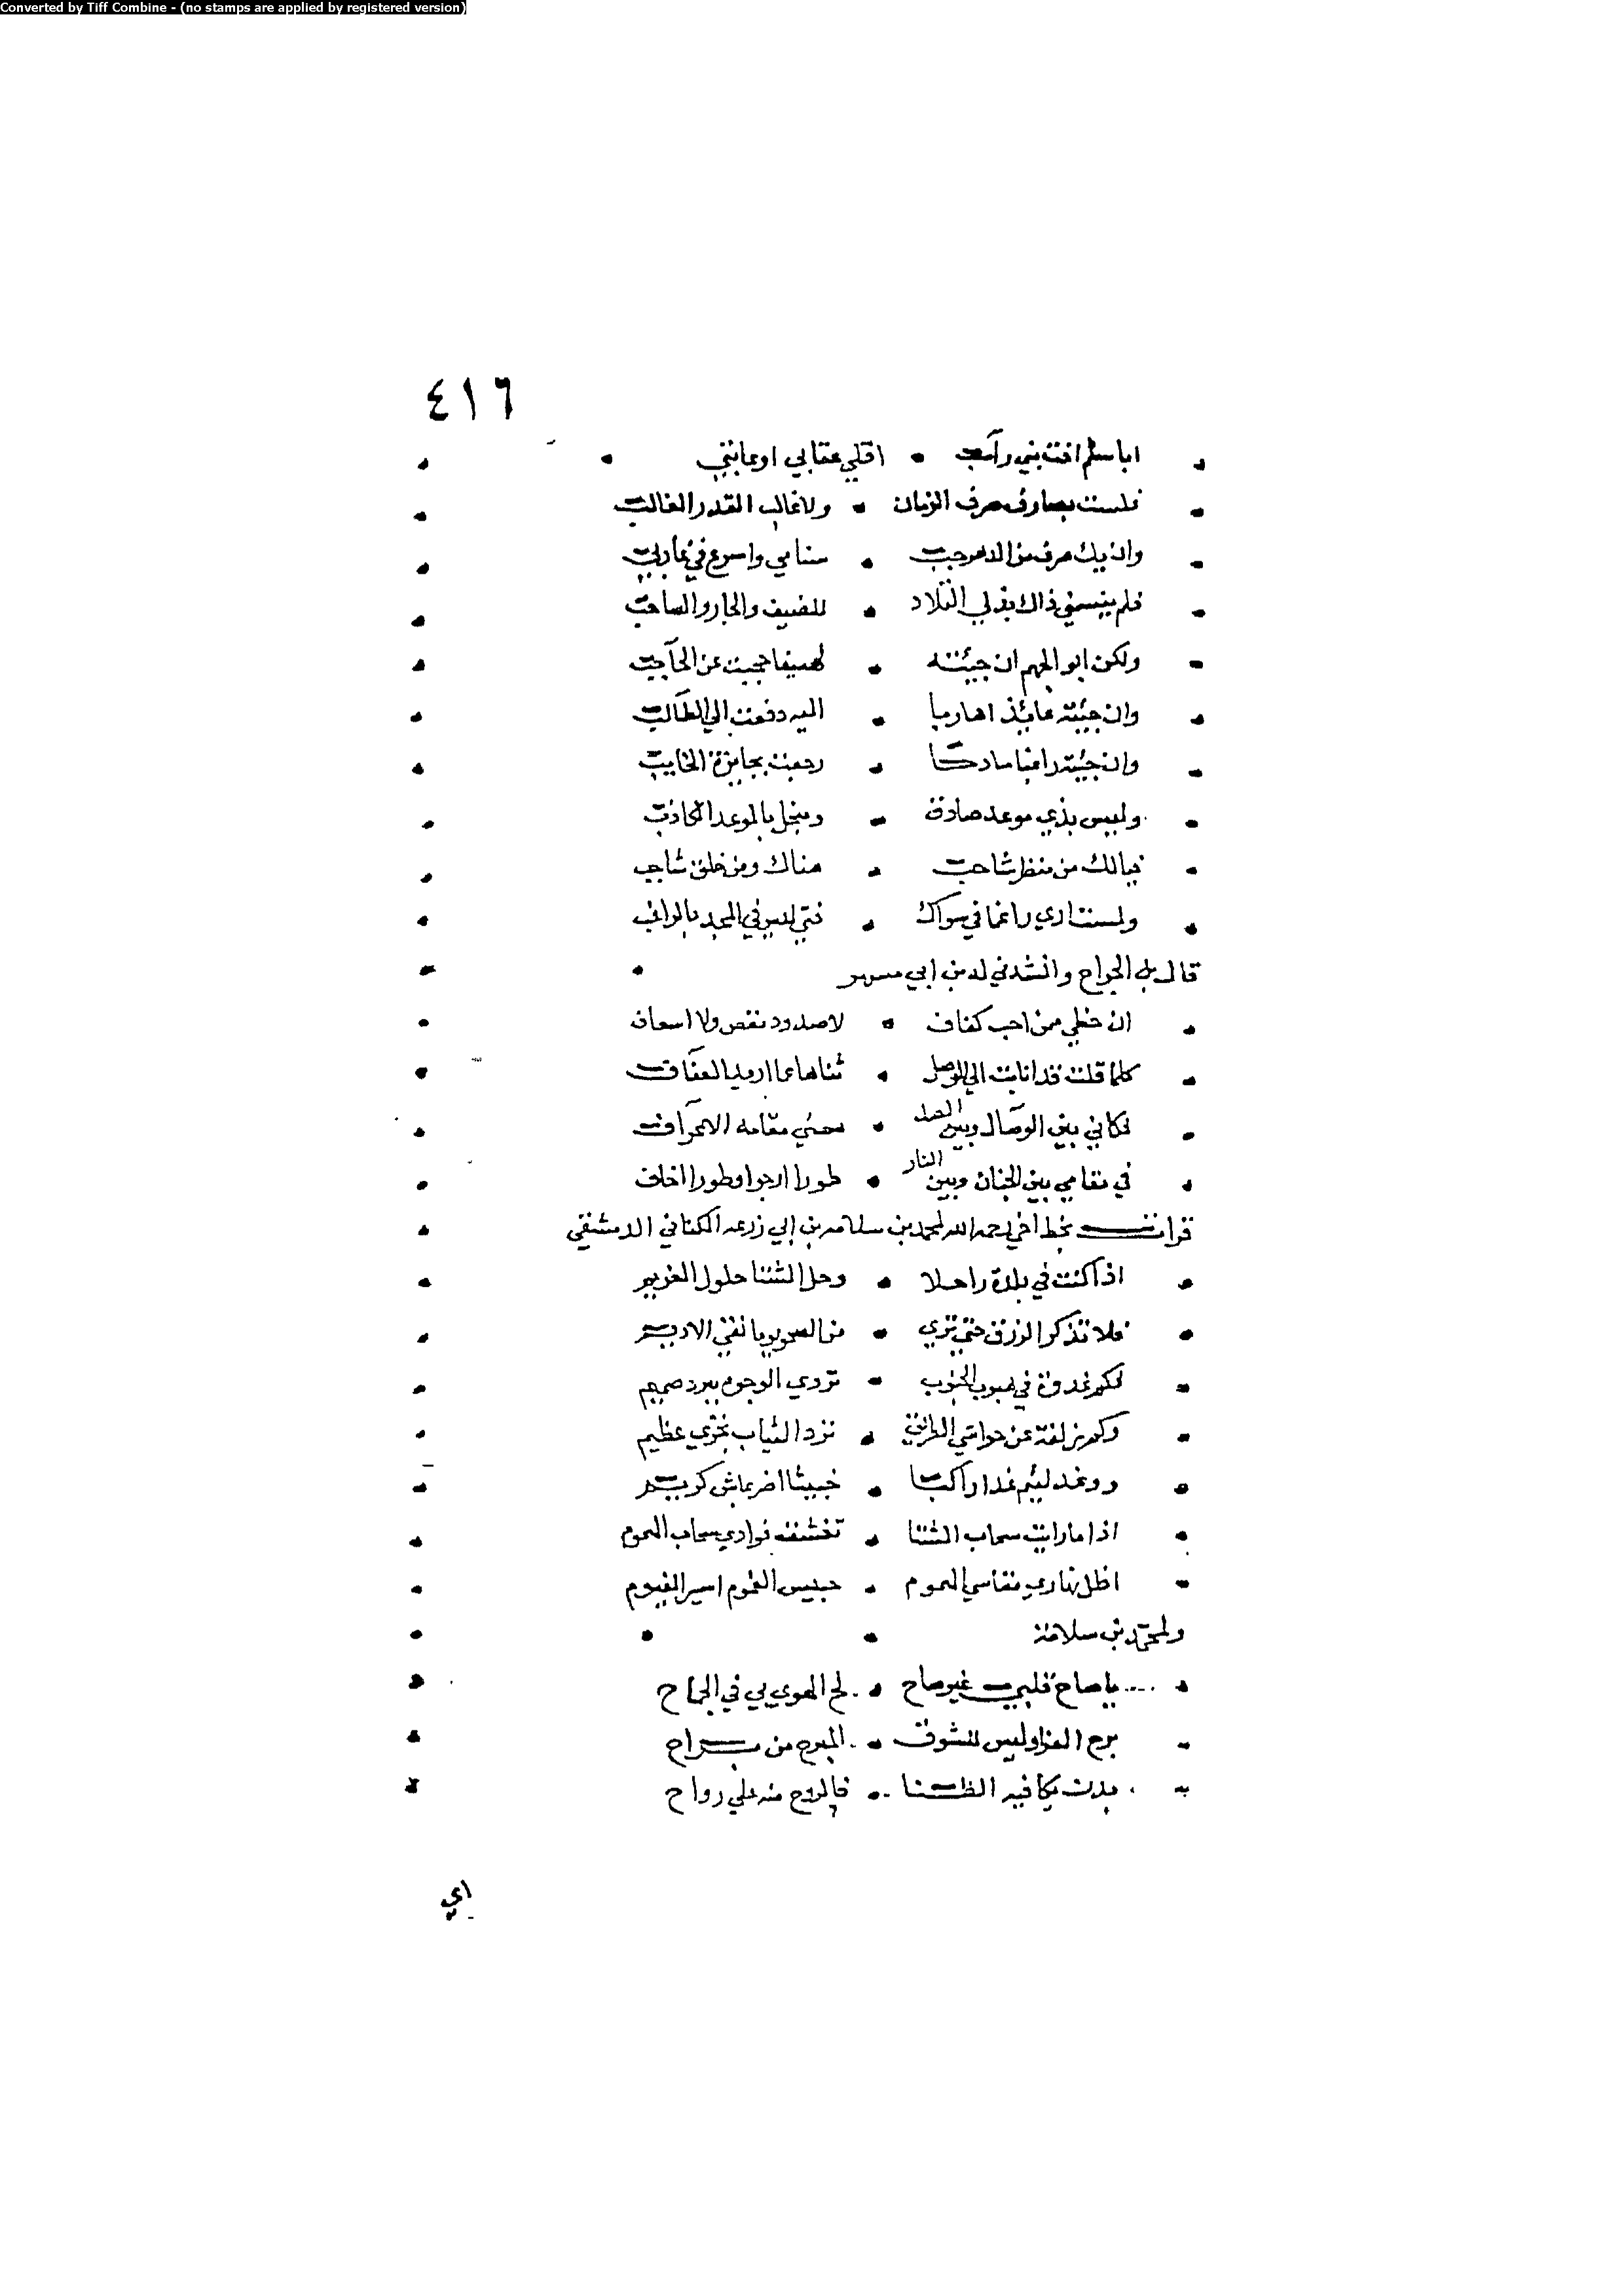 Converted by Tiff Combine - (no stamps are applied by registered version)
٤١٦
ابا سلم اخت بني راسب • اقلي عتابي او عاتبي
فلست بصارف صرف الزمان • ولا غالب القدر الغالب
وان يك صرف من الدهر جب • سنامي واسرع في غاربي
فلم ينسني ذاك بذلي التلاد • للضيف والجار والصاحب
ولكن ابو الجهم ان جيئته • لهيفا حجبت عن الحاجب
وان جيئته عايذا هاربا • اليه دفعت الي الطالب
وان جيئته راغبا مادحا • رجعت بجايزة الخايب
وليس بذي موعد صادق • ويبخل بالموعد الكاذب
فيالك من منظر شاحب • هناك ومن خلق شاجب
ولست اري راغبا في سواك • فتي ليس في المجد بالراغب
قال الجراح وانشدني له بن ابي مسهر
ان حظي ممن احب كفاف • لا صدود نقص ولا اسعاف
كلما قلت قد انابت الي الوصل • ثناها عما اريد العفاف
فكاني بين الوصال وبين الصد • ممن مقامه الاعراف
في مقامي بين الجنان وبين النار • طورا ارجوا وطورا اخاف
قرات بخط اخي رحمه الله لمحمد بن سلامه بن ابي زرعه الكناني الدمشقي
اذا كنت في بلدة راحلا • وحل الشتا حلول الغريم
فلا تذكر الرزق حتي تري • من الصحو يوما نقي الاديم
فكم غدوة في هبوب الجنوب • تردي الوجوه ببرد صميم
وكم زلفة عن حواشي الطريق • ترد الثياب بخزي عظيم
ووغد ليئم غدا راكبا • خبيثا اضر بماش كريم
اذا ما رايت سحاب الشتا • تغشت فوادي سحاب الهموم
اظل نهاري مقاسي الهموم • حبيس الغموم اسير الغيوم
ولمحمد بن سلامة
يا صاح قلبي غير صاح • لح الهوي بي في الجماح
برح العزا وليس للشوق • المبرح من براح
بدت بكافيه الظعنا • فالروح منه علي رواح
اي